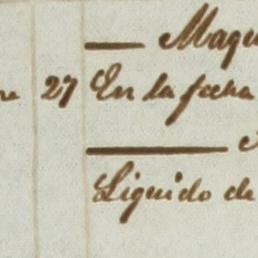 Maqu
27 En la fecha
Liquido de